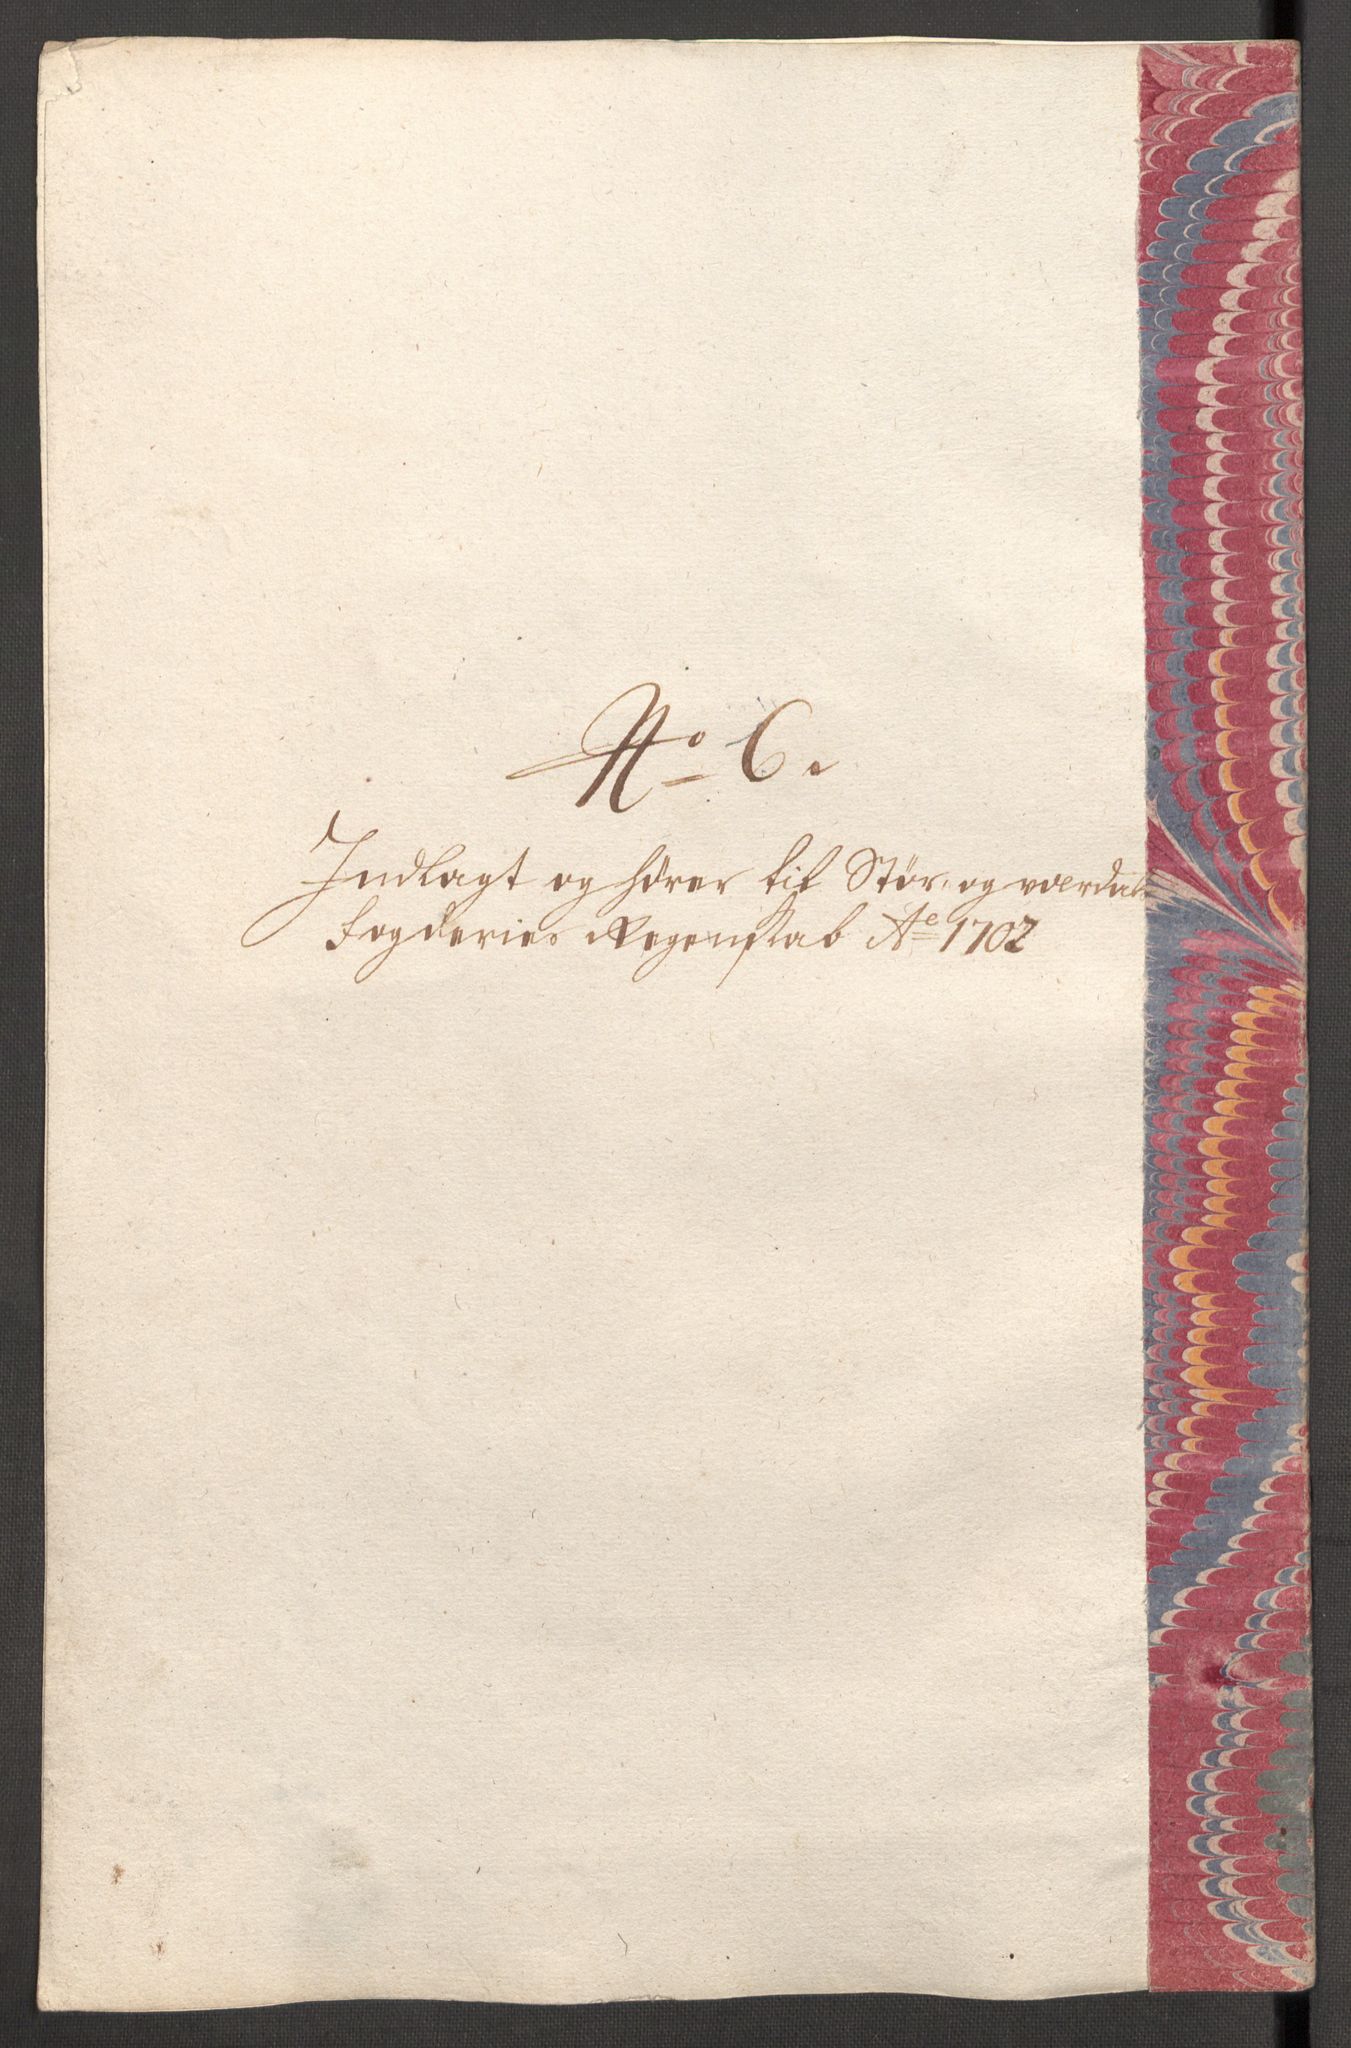 No 6.
Indlagt og hører til Stør: og værdals
fogderies Regenskab Ao 1702